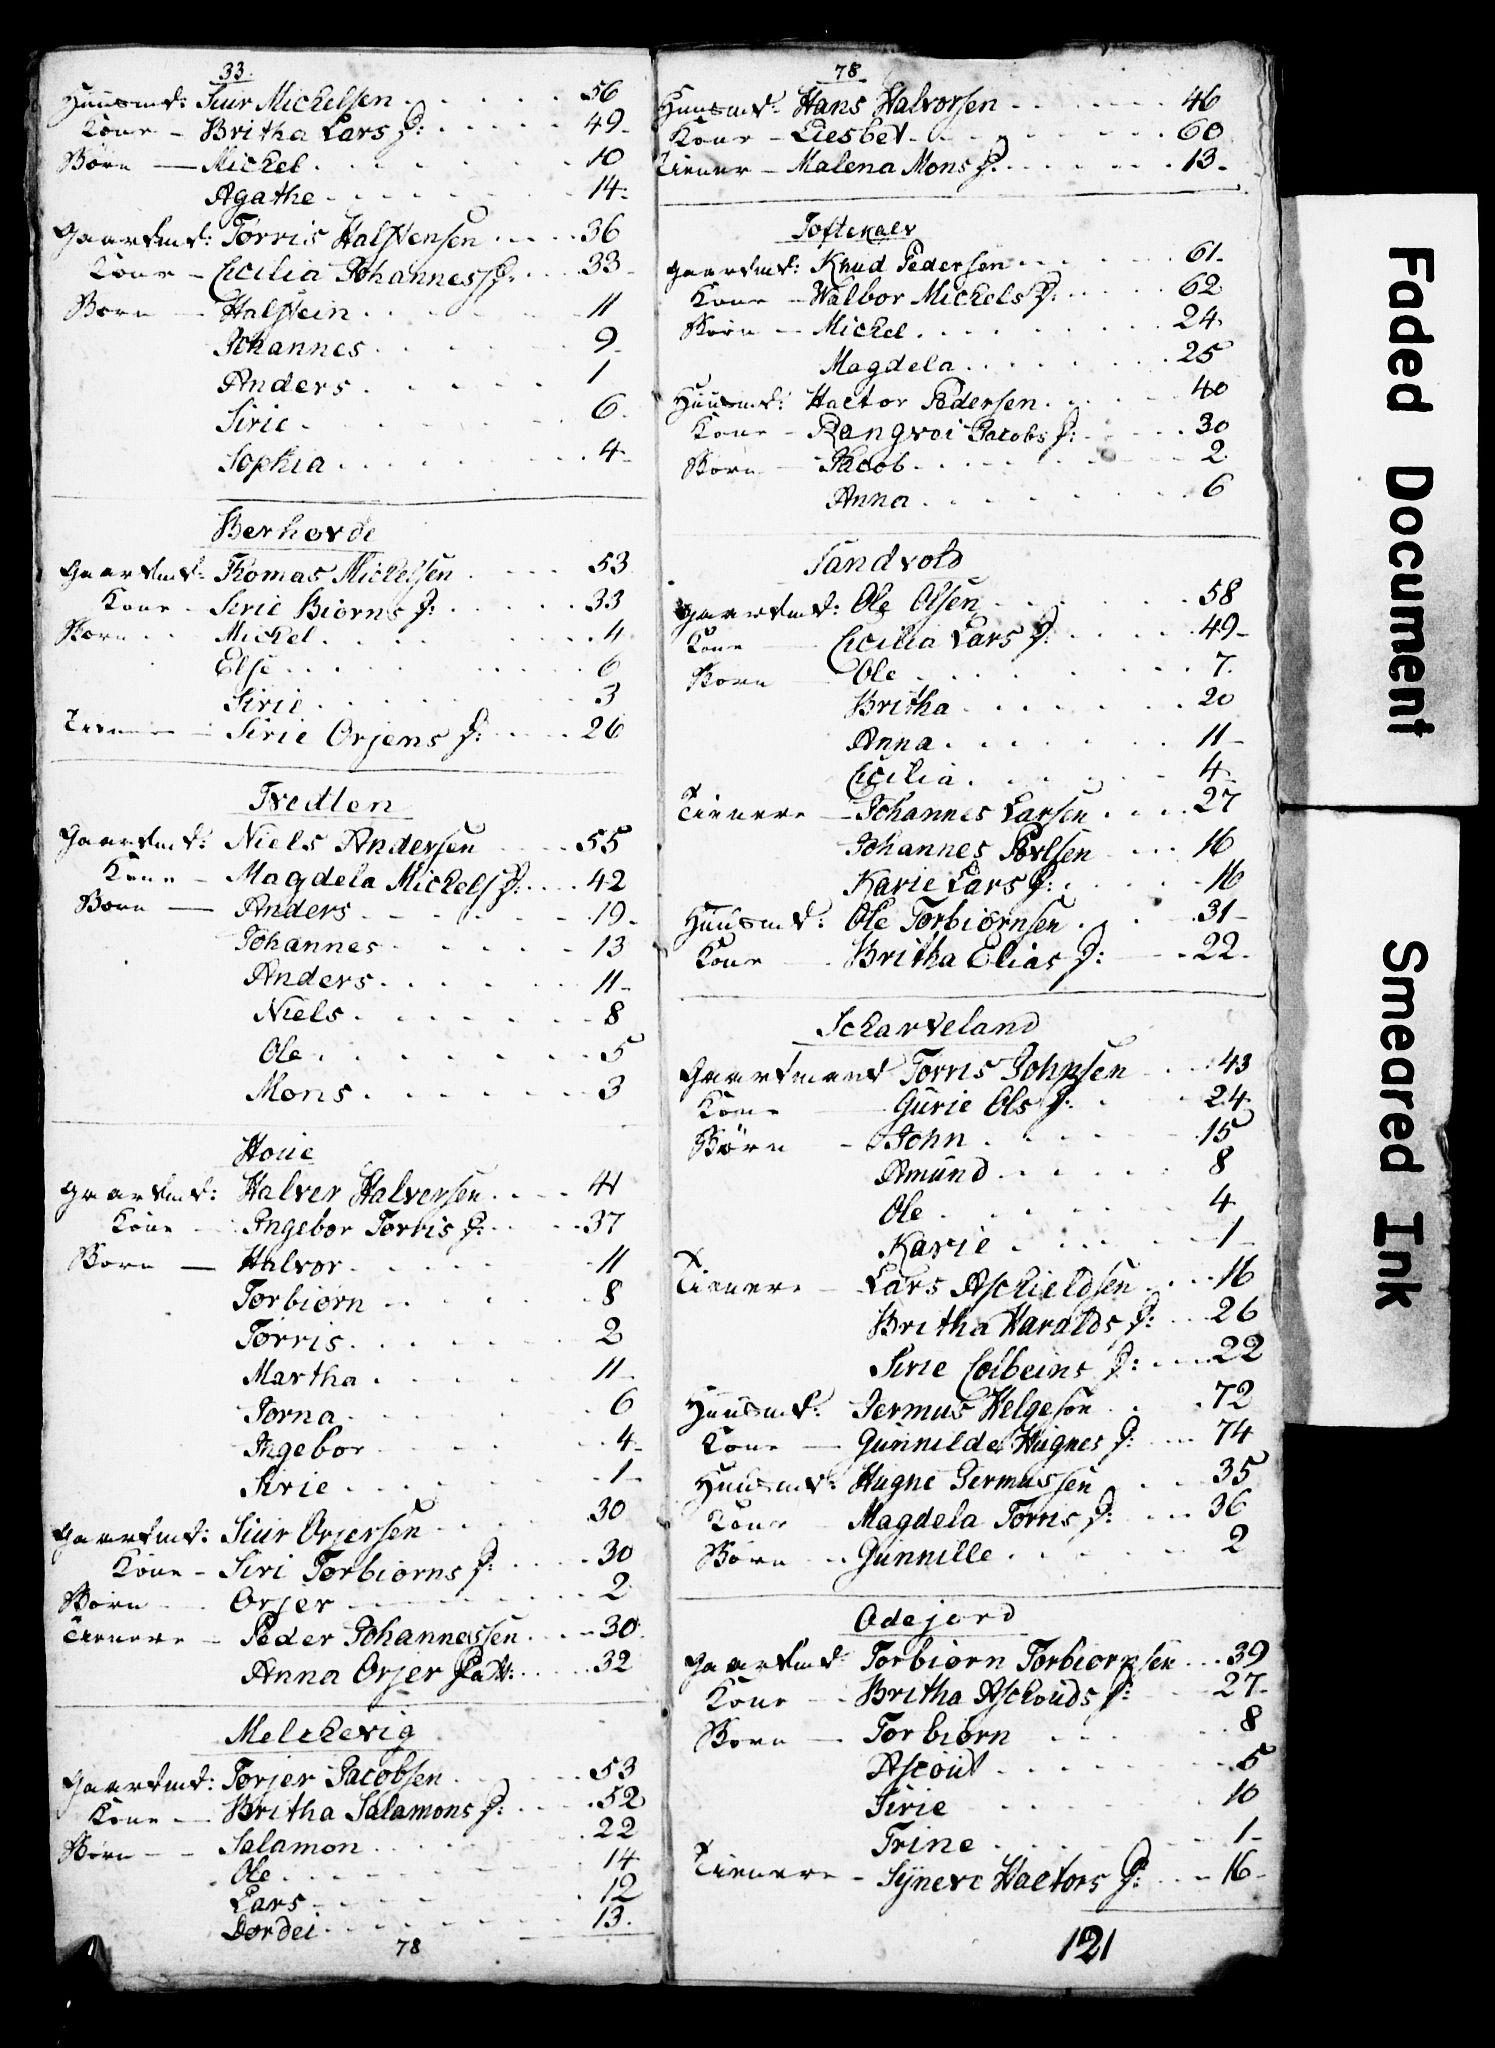 33.
Huusmd: Siur Michelsen 56
Kone - Britha Lars D: 49
Børn - Michel 10
Agathe 14
Gaardmd: Torris Halstensen 36
Kone - Cicilia Johannes D: 33
Børn - Halstein 11
Johannes 9
Anders 1
Sirie 6
Sophia 4
Berhovde
Gaardmd: Thomas Michelsen 53
Kone - Sirie Biørns D: 33
Børn Michel 4
Else 6
Sirie 3
Tienere - Sirie Orjens D: 26
Tvedten
Gaardmd: Niels Andersen 55
Kone - Magdela Michels D: 42
Børn - Anders 19
Johannes 13
Anders 11
Niels 8
Ole 5
Mons 3
Houie
Gaardmd: Halver Halversen 41
Kone Ingebor Torris D: 37
Børn - Halvor 11
Torbiørn 8
Torris 2
Martha 11
Jorna 6
Ingebor 4
Sirie 1
Gaardmd: Siur Orjersen 30
Kone - Siri Torbiørns D: 30
Børn Orjer 2
Tienere - Peder Johannessen 30
Anna Orjer Datt: 32
Melchevig
Gaardmd: Torjer Jacobsen 53
Kone - Britha Salamons D: 52
Børn - Salamon 22
Ole 14
Lars 12
Dordei 13
78
78
Huusmd: Hans Halvorsen 46
Kone - Liesbet 60
Tiener - Malena Mons D: 13
Toftekalv
Gaardmd: Knud Pedersen 61
Kone - Walbor Michels D: 62
Børn - Michel 24
Magdela 25
Huusmd: Hactor Pedersen 40
Kone - Rangvei Jacobs D: 30
Børn - Jacob 2
Anna 6
Sandvold
Gaardmd: Ole Olsen 58
Kone Cicilia Lars D: 49
Børn Ole 7
Britha 20
Anna 11
Cicilia 4
Tienere - Johannes Larsen 27
Johannes Povlsen 16
Karie Lars D: 16
Huusmd: Ole Torbiørnsen 31
Kone - Britha Elias D: 22
Scharveland
Gaardmand Torris Johnsen 43
Kone Gurie Ols D: 24
Børn - John 15
Amund 8
Ole 4
Karie 1
Tienere - Lars Aschieldsen 16
Britha Haralds D: 26
Sirie Colbeins D: 22
Huusmd: Jermus Helgesen 72
Kone - Gunnilde Hugnes D: 74
Huusmd: Hugne Jermussen 35
Kone - Magdela Torris D: 36
Børn - Gunnille 2
Odejord
Gaardmd: Torbiørn Torbiørnsen 39
Kone - Britha Aschouds D: 27
Børn - Torbiørn 8
Ascout 5
Sirie 10
Trine 1
Tienere - Syneve Hactors D: 16
121
Faded Document
Smeared Ink